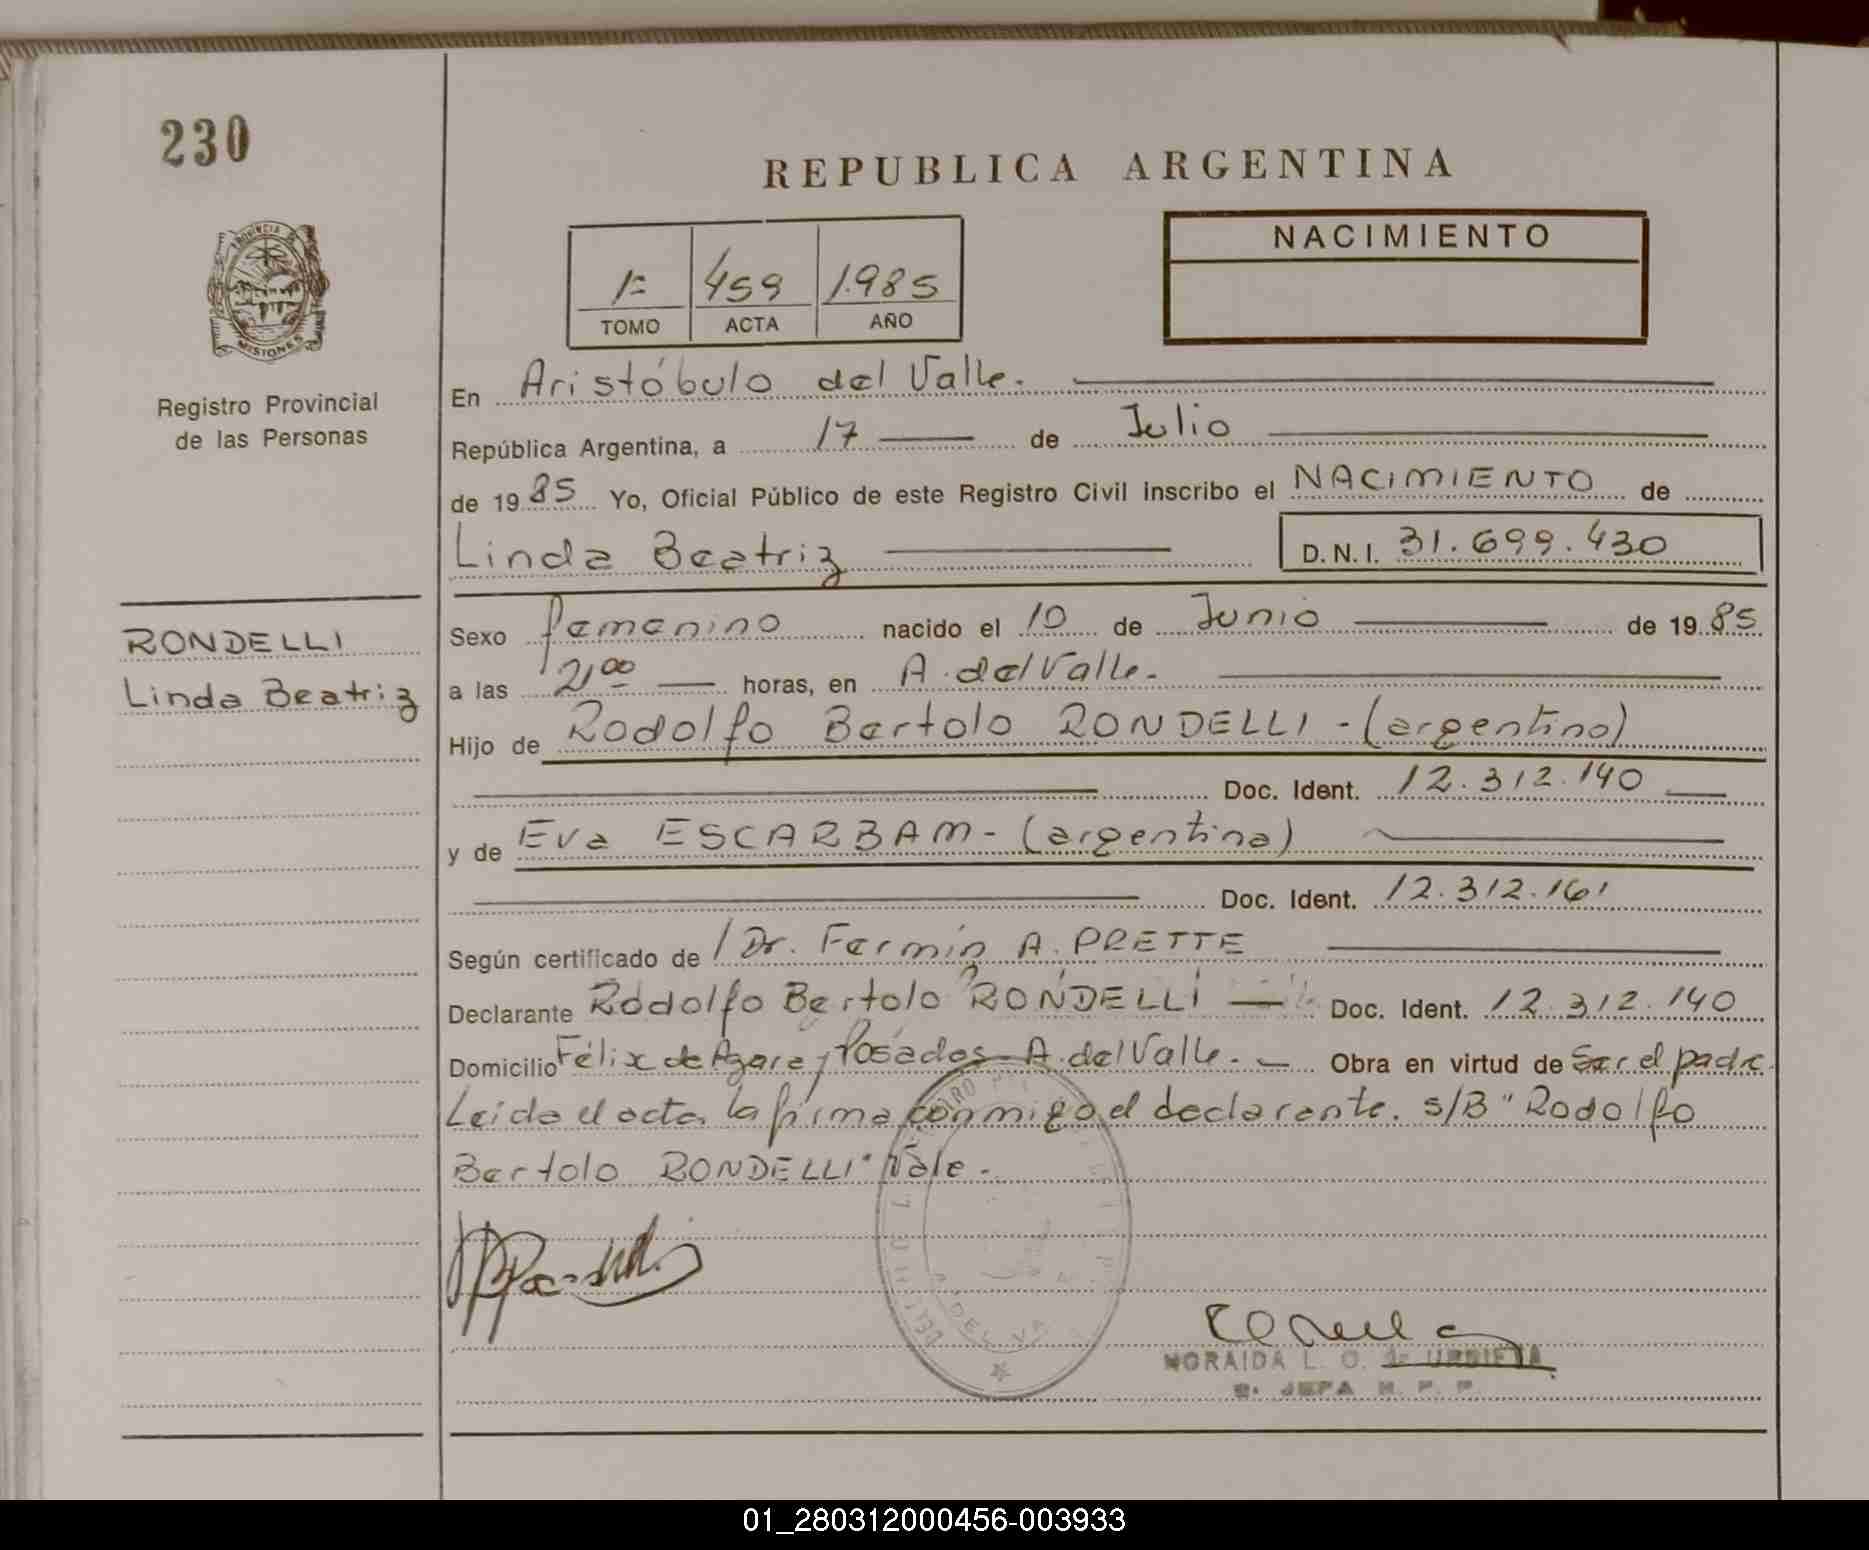 230
REPUBLICA ARGENTINA
PROVINCIA DE
MISIONES
Registro Provincial
de las Personas
1= 459 1.985
TOMO ACTA AÑO
NACIMIENTO
En Aristóbulo del Valle.
República Argentina, a 17 de Julio
de 1985 Yo, Oficial Público de este Registro Civil inscribo el NACIMIENTO de
Linda Beatriz D.N.I. 31.699.430
RONDELLI
Linda Beatriz
Sexo femenino nacido el 10 de Junio de 1985
a las 21⁰⁰ horas, en A. del Valle.
Hijo de Rodolfo Bertolo RONDELLI - (argentino)
Doc. Ident. 12.312.140
y de Eva ESCARBAM - (argentina)
Doc. Ident. 12.312.161
Según certificado de / Dr. Fermín A. PRETTE
Declarante Rodolfo Bertolo RONDELLI Doc. Ident. 12.312.140
Domicilio Félix de Azara y Posadas - A. del Valle. Obra en virtud de Ser el padre.
Leída el acta, la firma conmigo el declarante. S/B "Rodolfo
Bertolo RONDELLI" Vale.
A. DEL VA
NORAIDA L. O. de URBIETA
2. JEFA R. P. P.
01_280312000456-003933